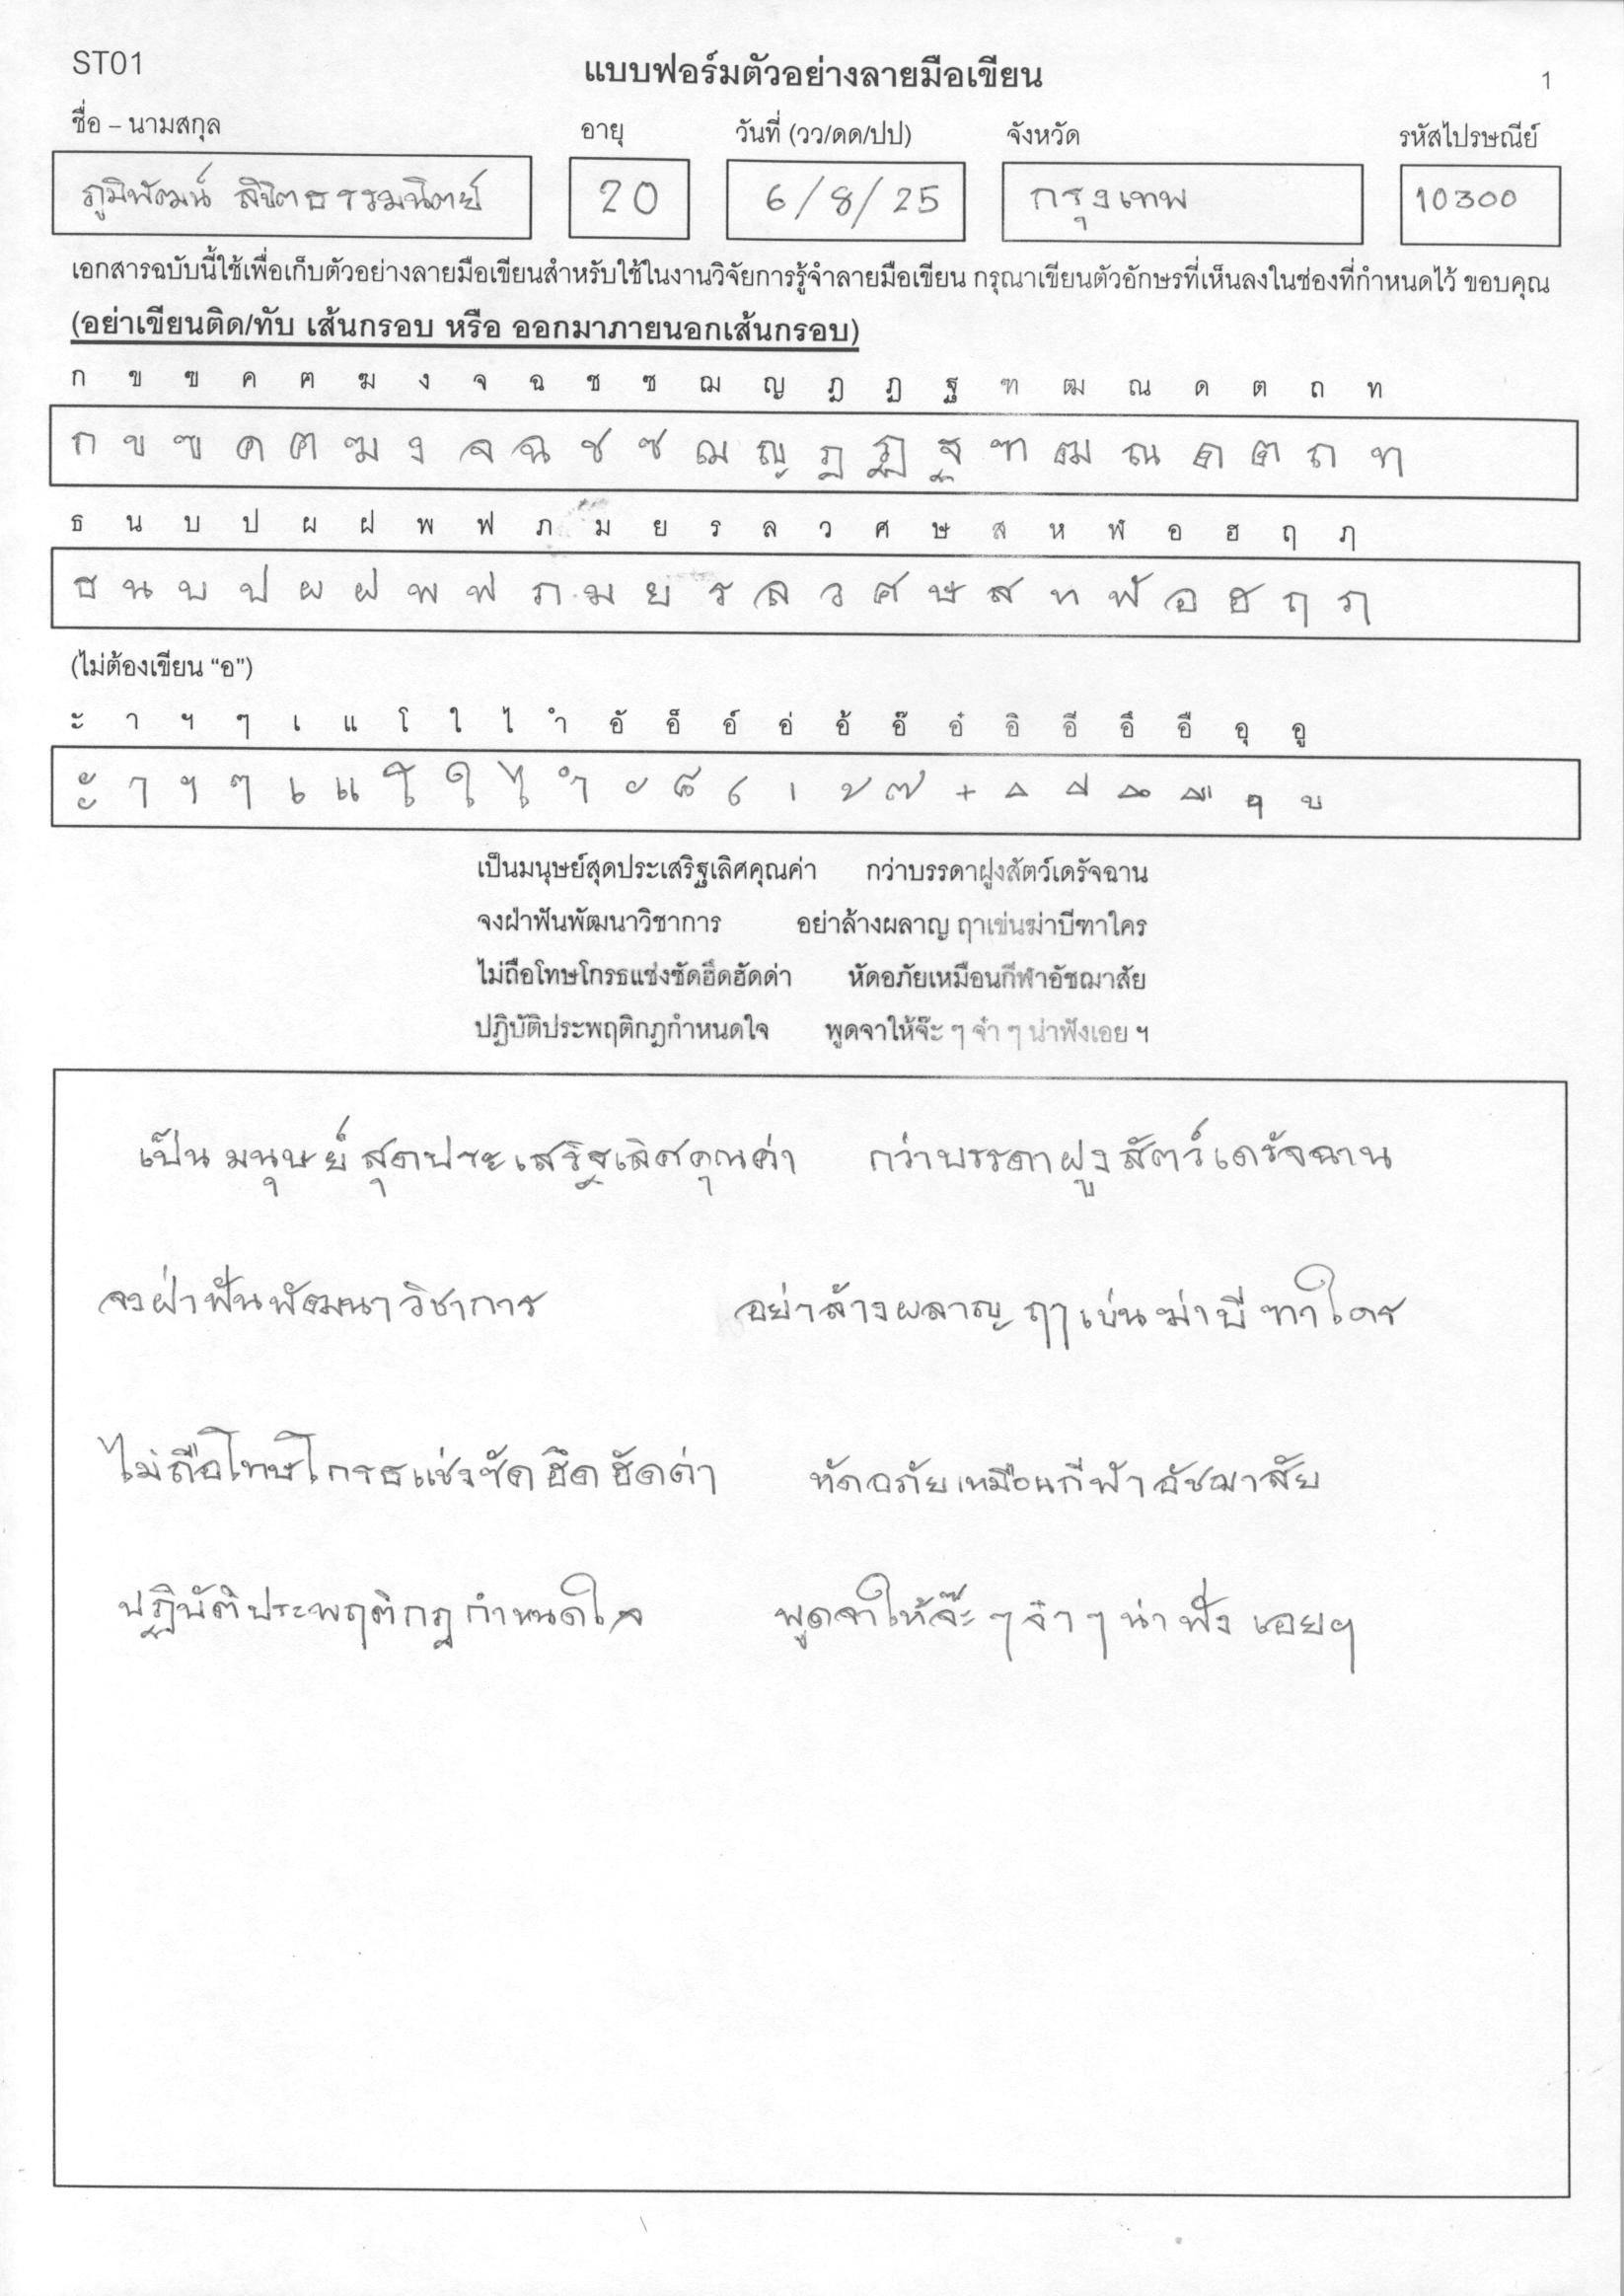 ST01
แบบฟอร์มตัวอย่างลายมือเขียน
1
ชื่อ – นามสกุล อายุ วันที่ (วว/ดด/ปป) จังหวัด รหัสไปรษณีย์
ภูมิพัฒน์ ลิขิตธรรมนิตย์ 20 6/8/25 กรุงเทพ 10300
เอกสารฉบับนี้ใช้เพื่อเก็บตัวอย่างลายมือเขียนสำหรับใช้ในงานวิจัยการรู้จำลายมือเขียน กรุณาเขียนตัวอักษรที่เห็นลงในช่องที่กำหนดไว้ ขอบคุณ
(อย่าเขียนติด/ทับ เส้นกรอบ หรือ ออกมาภายนอกเส้นกรอบ)
ก ข ฃ ค ฅ ฆ ง จ ฉ ช ซ ฌ ญ ฎ ฏ ฐ ฑ ฒ ณ ด ต ถ ท
ก ข ฃ ค ฅ ฆ ง จ ฉ ช ซ ฌ ญ ฎ ฏ ฐ ฑ ฒ ณ ด ต ถ ท
ธ น บ ป ผ ฝ พ ฟ ภ ม ย ร ล ว ศ ษ ส ห ฬ อ ฮ ฤ ฦ
ธ น บ ป ผ ฝ พ ฟ ภ ม ย ร ล ว ศ ษ ส ห ฬ อ ฮ ฤ ฦ
(ไม่ต้องเขียน “อ”)
ะ า ฯ ๆ เ แ โ ใ ไ ำ อั อ็ อ์ อ่ อ้ อ๊ อ๋ อิ อี อึ อื อุ อู
ะ า ฯ ๆ เ แ โ ใ ไ ำ ั ็ ์ ่ ้ ๊ ๋ ิ ี ึ ื ุ ู
เป็นมนุษย์สุดประเสริฐเลิศคุณค่า กว่าบรรดาฝูงสัตว์เดรัจฉาน
จงฝ่าฟันพัฒนาวิชาการ อย่าล้างผลาญ ฤาเข่นฆ่าบีฑาใคร
ไม่ถือโทษโกรธแช่งซัดฮึดฮัดด่า หัดอภัยเหมือนกีฬาอัชฌาสัย
ปฏิบัติประพฤติกฎกำหนดใจ พูดจาให้จ๊ะ ๆ จ๋า ๆ น่าฟังเอย ฯ
เป็นมนุษย์สุดประเสริฐเลิศคุณค่า กว่าบรรดาฝูงสัตว์เดรัจฉาน
จงฝ่าฟันพัฒนาวิชาการ อย่าล้างผลาญ ฤาเข่นฆ่าบีฑาใคร
ไม่ถือโทษโกรธแช่งซัดฮึดฮัดด่า หัดอภัยเหมือนกีฬาอัชฌาสัย
ปฏิบัติประพฤติกฎกำหนดใจ พูดจาให้จ๊ะ ๆ จ๋า ๆ น่าฟัง เอยฯ